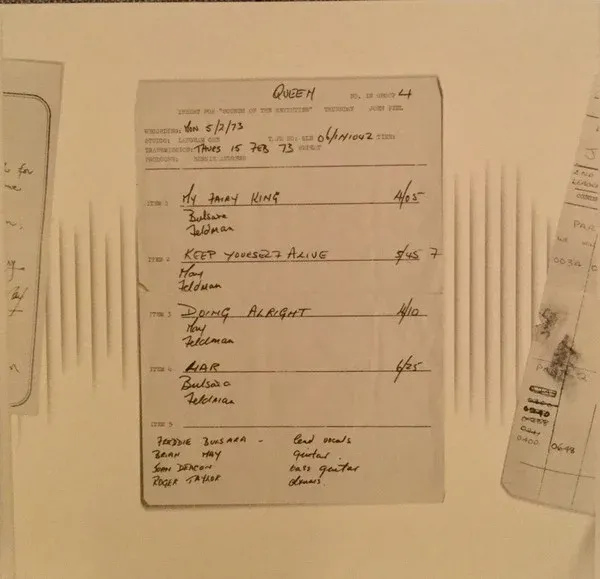 QUEEN NO. IN GROUP 4
INSERT FOR "SOUNDS OF THE SEVENTIES" THURSDAY JOHN PEEL
RECORDING: MON 5/2/73
STUDIO: LANGHAM ONE TAPE NO: SLN 06/1N1042 TIME:
TRANSMISSION: THURS 15 FEB 73 REPEAT
PRODUCER: BERNIE ANDREWS
ITEM 1 MY FAIRY KING 4/05
Bulsara
Feldman
ITEM 2 KEEP YOURSELF ALIVE 3/45 7
May
Feldman
ITEM 3 DOING ALRIGHT 4/10
May
Feldman
ITEM 4 LIAR 6/25
Bulsara
Feldman
ITEM 5
FREDDIE BULSARA - lead vocals
BRIAN MAY guitar.
JOHN DEACON bass guitar
ROGER TAYLOR drums.
for
me
J
AND
PAR
0034
0400 0648